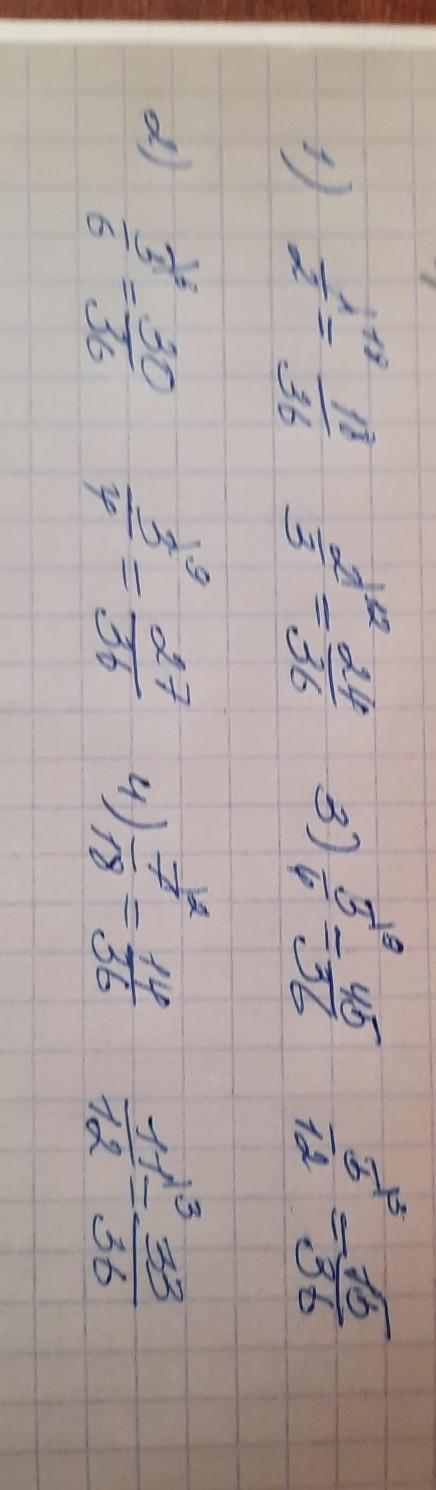 1) 1/2 |18 = 18/36 2/3 |12 = 24/36 3) 5/4 |9 = 45/36 5/12 |3 = 15/36
2) 5/6 = 30/36 3/4 |9 = 27/36 4) 7/18 |2 = 14/36 11/12 |3 = 33/36